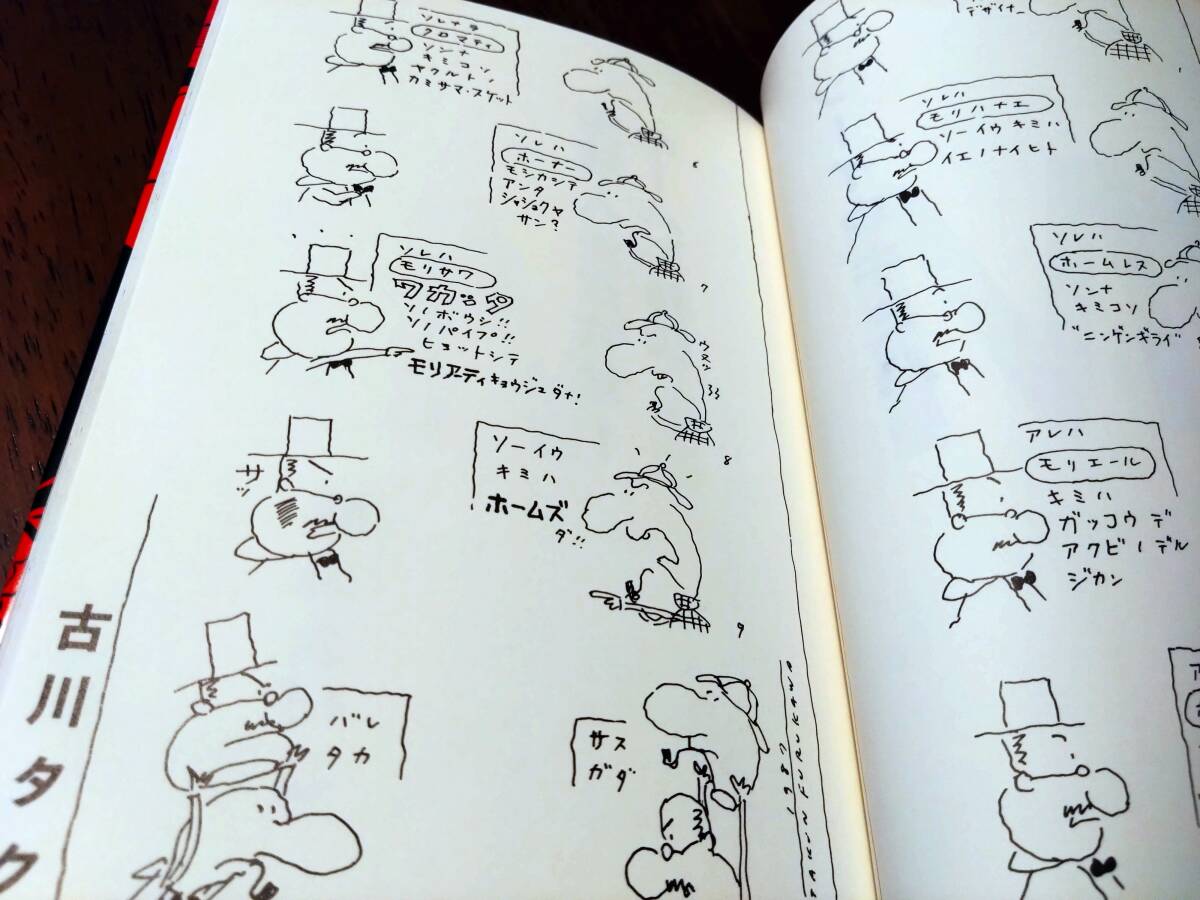 ソレナラ
クロマティ
ソンナ
キミコソ
ヤクルトノ
カミサマ・スケット
6
ソレハ
ホーナー
モシカシテ
アンタ
シャショクヤ
サン?
7
ソレハ
モリサワ
ワカッタ
ソノボウシ!!
ソノパイプ!!
ヒョットシテ
モリアーティキョウジュダナ!
8
サッ
ソーイウ
キミハ
ホームズ
ダ!!
9
バレ
タカ
サス
ガダ
1987
TAKUN FURUKAWA
古川タク
デザイナー
ソレハ
モリハナエ
ソーイウキミハ
イエノナイヒト
ソレハ
ホームレス
ソンナ
キミコソ
"ニンゲンギライ"
アレハ
モリエール
キミハ
ガッコウデ
アクビノデル
ジカン